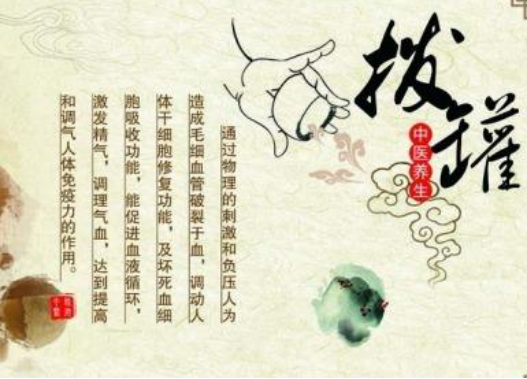 拔罐
中医养生
通过物理的刺激和负压人为
造成毛细血管破裂于血，调动人
体干细胞修复功能，及坏死血细
胞吸收功能，能促进血液循环，
激发精气，调理气血，达到提高
和调气人体免疫力的作用。